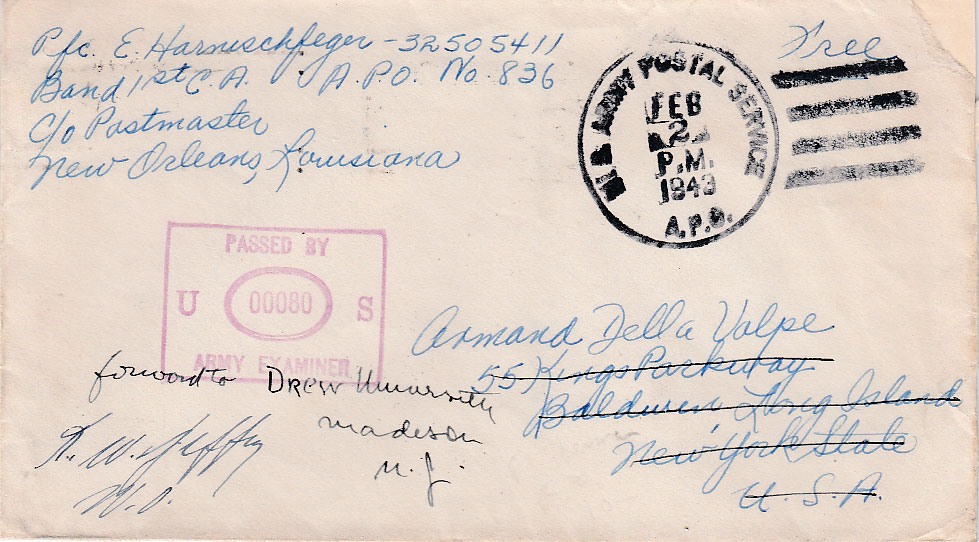 Pfc. E. Harnischfeger - 32505411
Band 1st C.A. A.P.O. No. 836
c/o Postmaster
New Orleans, Louisiana
Free
U.S. ARMY POSTAL SERVICE
FEB
2
P.M.
1943
A.P.O.
PASSED BY
U 00080 S
ARMY EXAMINER
Armand Della Volpe
55 Kings Parkway
Baldwin Long Island
New York State
U.S.A.
forward to Drew University
Madison
N.J.
W.O.